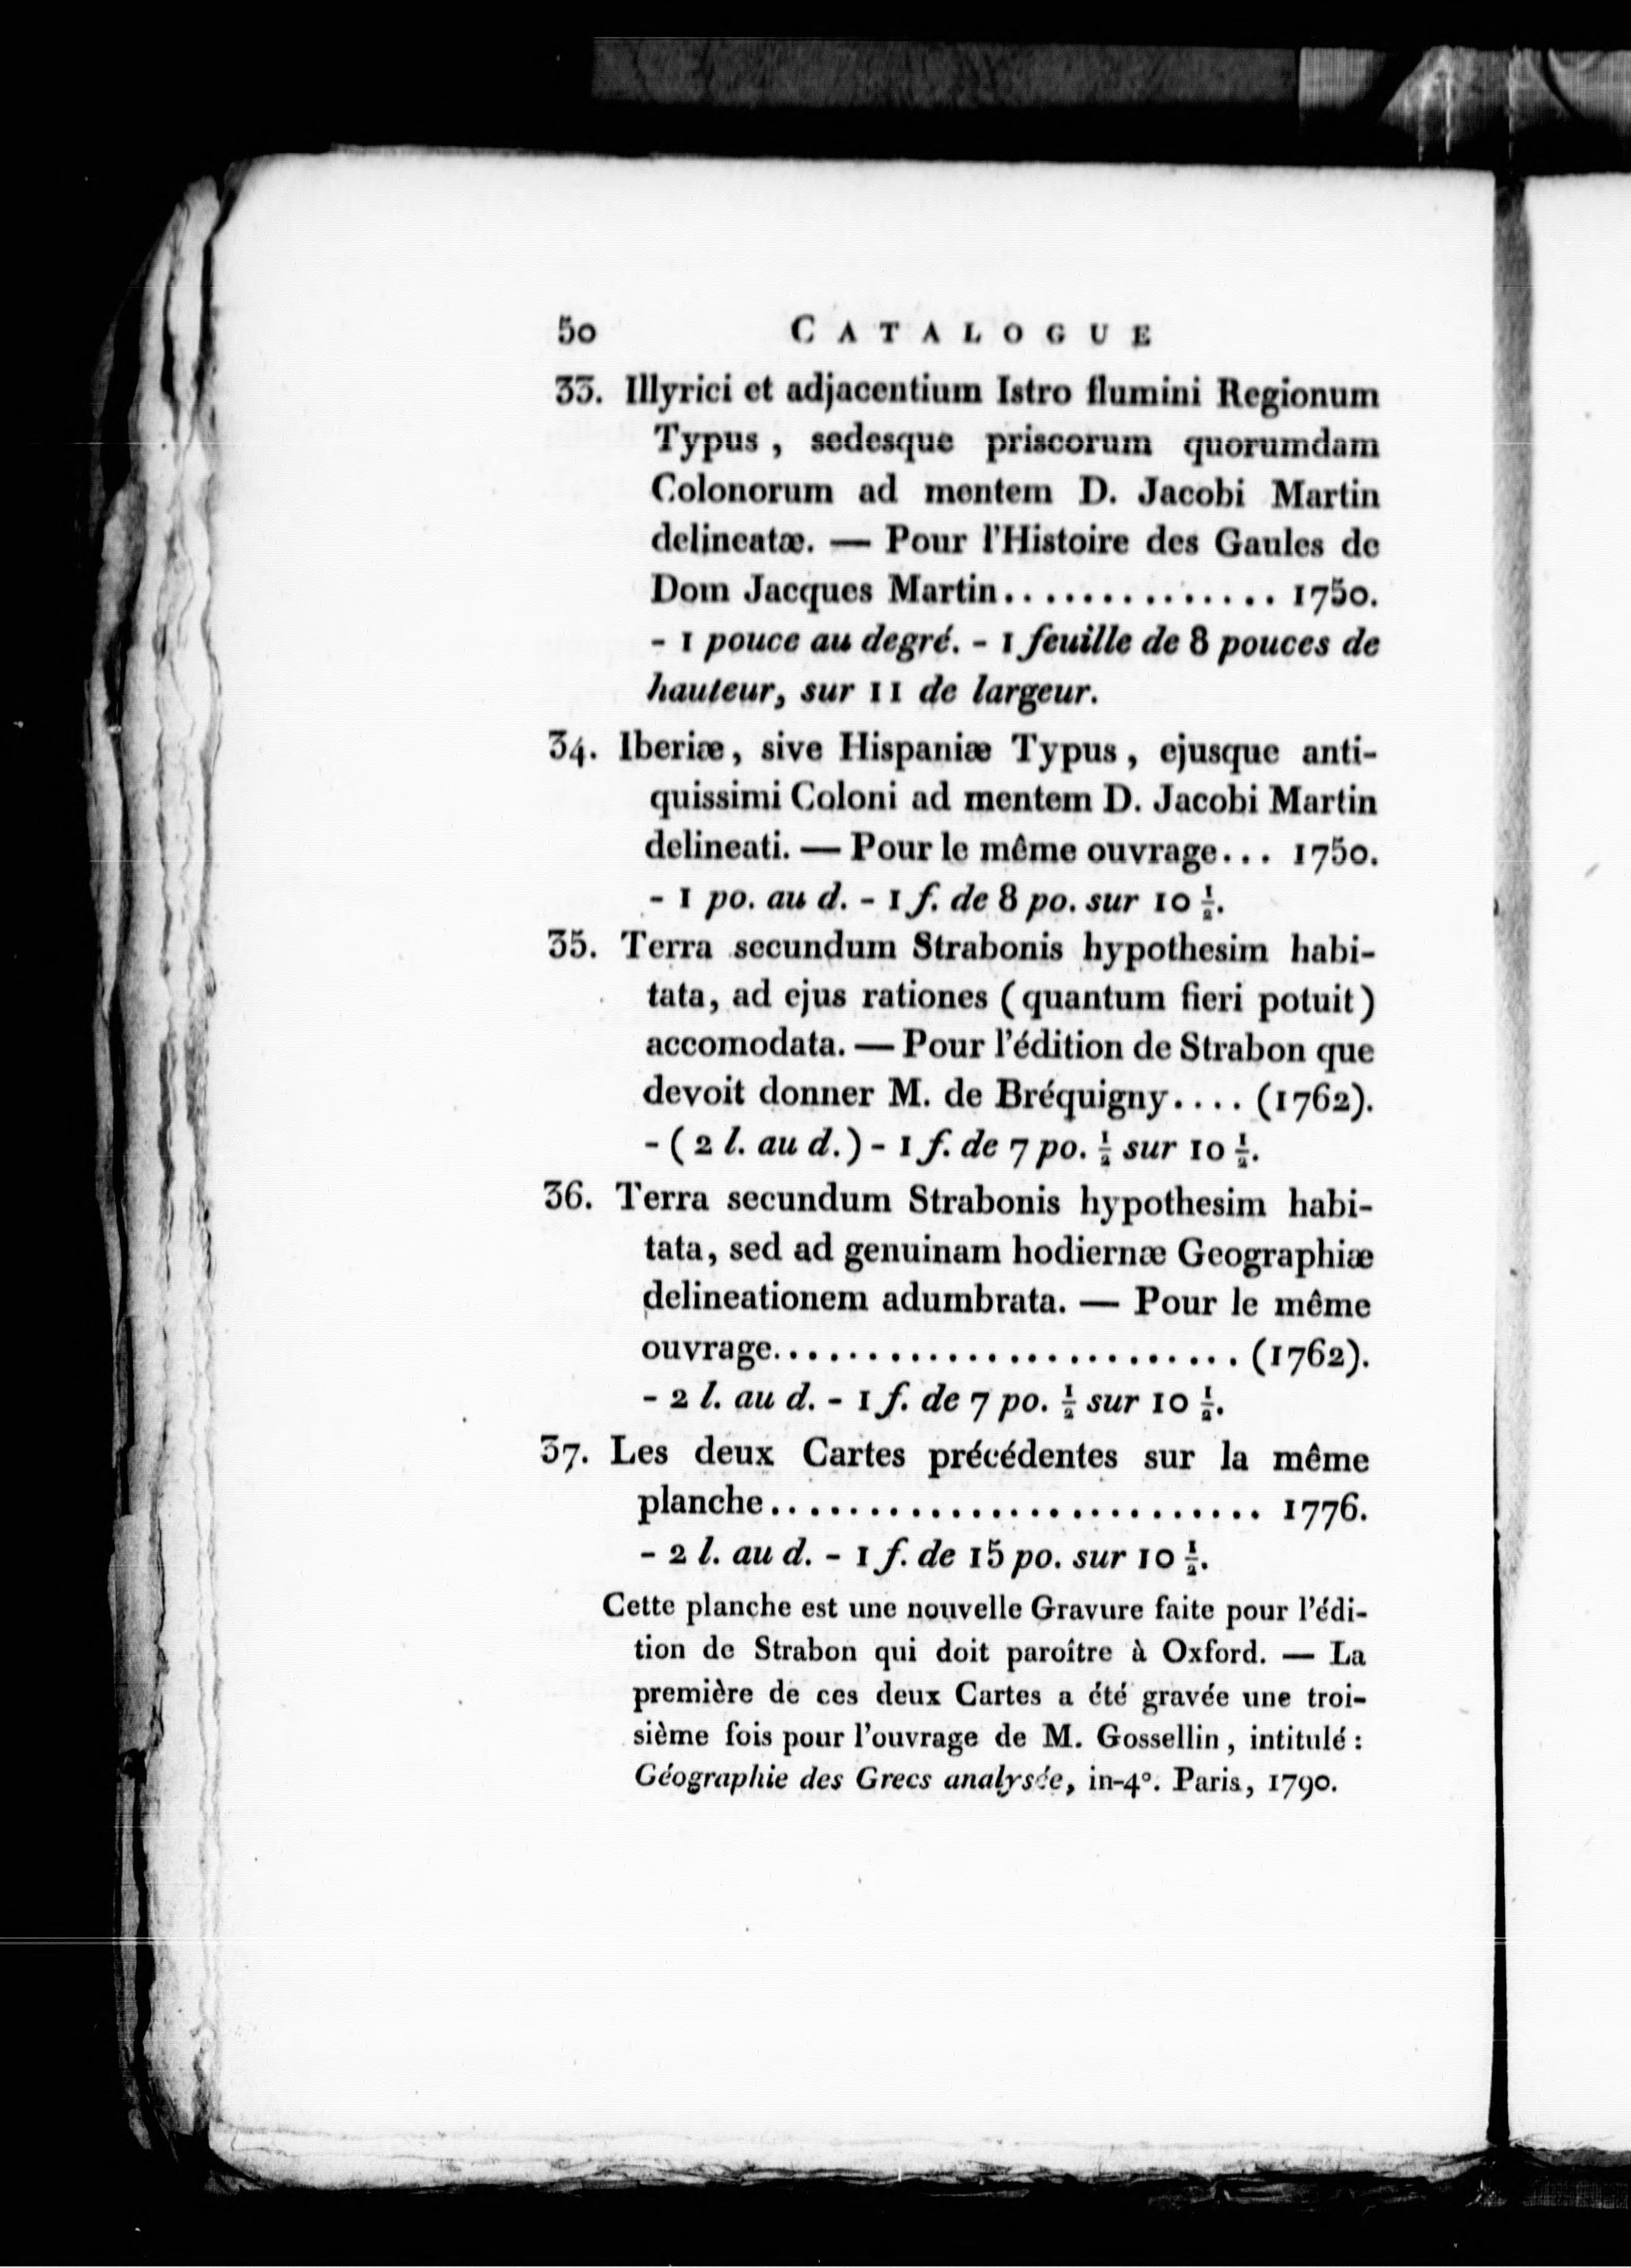 50 CATALOGUE
33. Illyrici et adjacentium Istro flumini Regionum
Typus, sedesque priscorum quorumdam
Colonorum ad mentem D. Jacobi Martin
delineatæ. — Pour l'Histoire des Gaules de
Dom Jacques Martin.............. 1750.
- 1 pouce au degré. - 1 feuille de 8 pouces de
hauteur, sur 11 de largeur.
34. Iberiæ, sive Hispaniæ Typus, ejusque anti-
quissimi Coloni ad mentem D. Jacobi Martin
delineati. — Pour le même ouvrage... 1750.
- 1 po. au d. - 1 f. de 8 po. sur 10 ½.
35. Terra secundum Strabonis hypothesim habi-
tata, ad ejus rationes (quantum fieri potuit)
accomodata. — Pour l'édition de Strabon que
devoit donner M. de Bréquigny.... (1762).
- (2 l. au d.) - 1 f. de 7 po. ½ sur 10 ½.
36. Terra secundum Strabonis hypothesim habi-
tata, sed ad genuinam hodiernæ Geographiæ
delineationem adumbrata. — Pour le même
ouvrage......................... (1762).
- 2 l. au d. - 1 f. de 7 po. ½ sur 10 ½.
37. Les deux Cartes précédentes sur la même
planche.......................... 1776.
- 2 l. au d. - 1 f. de 15 po. sur 10 ½.
Cette planche est une nouvelle Gravure faite pour l'édi-
tion de Strabon qui doit paroître à Oxford. — La
première de ces deux Cartes a été gravée une troi-
sième fois pour l'ouvrage de M. Gossellin, intitulé :
Géographie des Grecs analysée, in-4°. Paris, 1790.